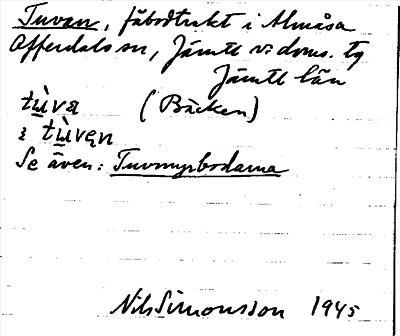 Tuvan, fäbodtrakt i Almåsa
Offerdals sn, Jämtl v: doms. tg
Jämtl län
tù̱va (Bäcken)
i tù̱vąn
Se även: Tuvmyrbodarna
Nils Simonsson 1945